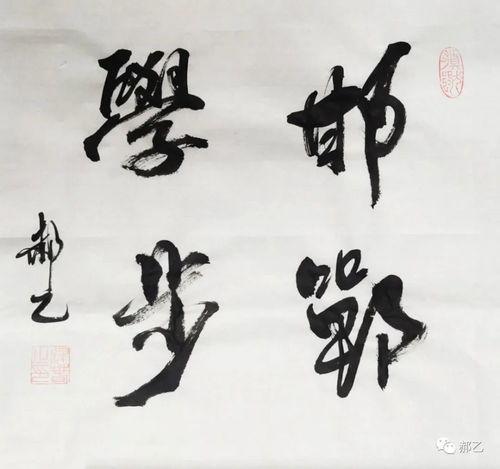 邯鄲
學步
郝乙
郝乙